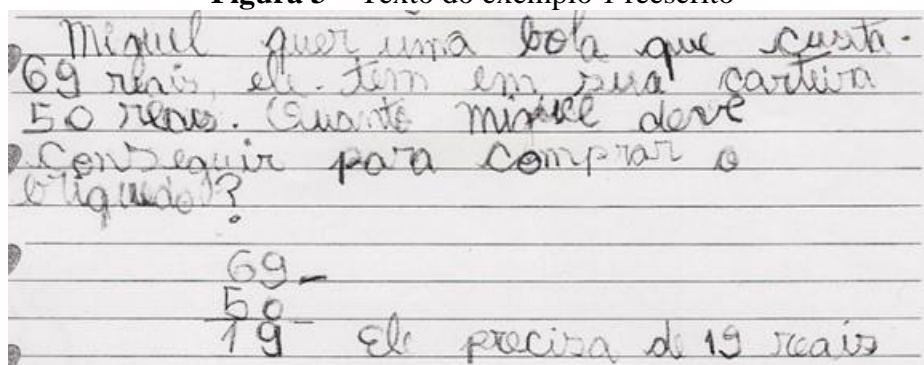 Figura 3 – Texto do exemplo 1 reescrito
Miguel quer uma bola que custa
69 reais, ele tem em sua carteira
50 reais. Quanto Miguel deve
conseguir para comprar o
briquedo?
69 -
50
19 Ele precisa de 19 reais